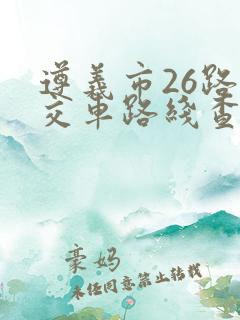 遵义市26路
交车路线查
豪妈
未经同意禁止转载